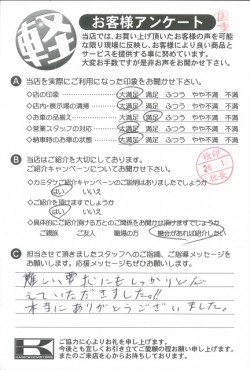 軽
お客様アンケート
当店では、お買い上げ頂いたお客様の声を可能
な限り現場に反映し、お客様により良い商品と
サービスを提供する事に努めています。
大変お手数ですが是非お声をお聞かせ下さい。
A 当店を実際にご利用になった印象をお聞かせ下さい。
◇店の印象 大満足 満足 ふつう やや不満 不満
◇店内・展示場の清掃 大満足 満足 ふつう やや不満 不満
◇お車の品揃え 大満足 満足 ふつう やや不満 不満
◇営業スタッフの対応 大満足 満足 ふつう やや不満 不満
◇納車時のお車の状態 大満足 満足 ふつう やや不満 不満
B 当店はご紹介を大切にしております。
ご紹介キャンペーンについてお聞かせ下さい。
◇カミタケご紹介キャンペーンのご説明はありましたでしょうか
はい いいえ
◇ご紹介を頂けますでしょうか
はい いいえ
◇具体的にご紹介頂ける方とのご関係をお聞かせ頂けますでしょうか
ご親族 ご友人 職場の方 機会があれば紹介したい
C 担当させて頂きましたスタッフへのご指摘、ご指導メッセージを
お願いします。応援メッセージもぜひお願いします。
難しい要求にもしっかりと応
えていただきました。
本当にありがとうございました。
K
ご協力に心よりお礼を申し上げます。
今後とも宜しくお引き立てご愛顧の程お願い申し上げます。
またのご来店を心からお待ちしております。